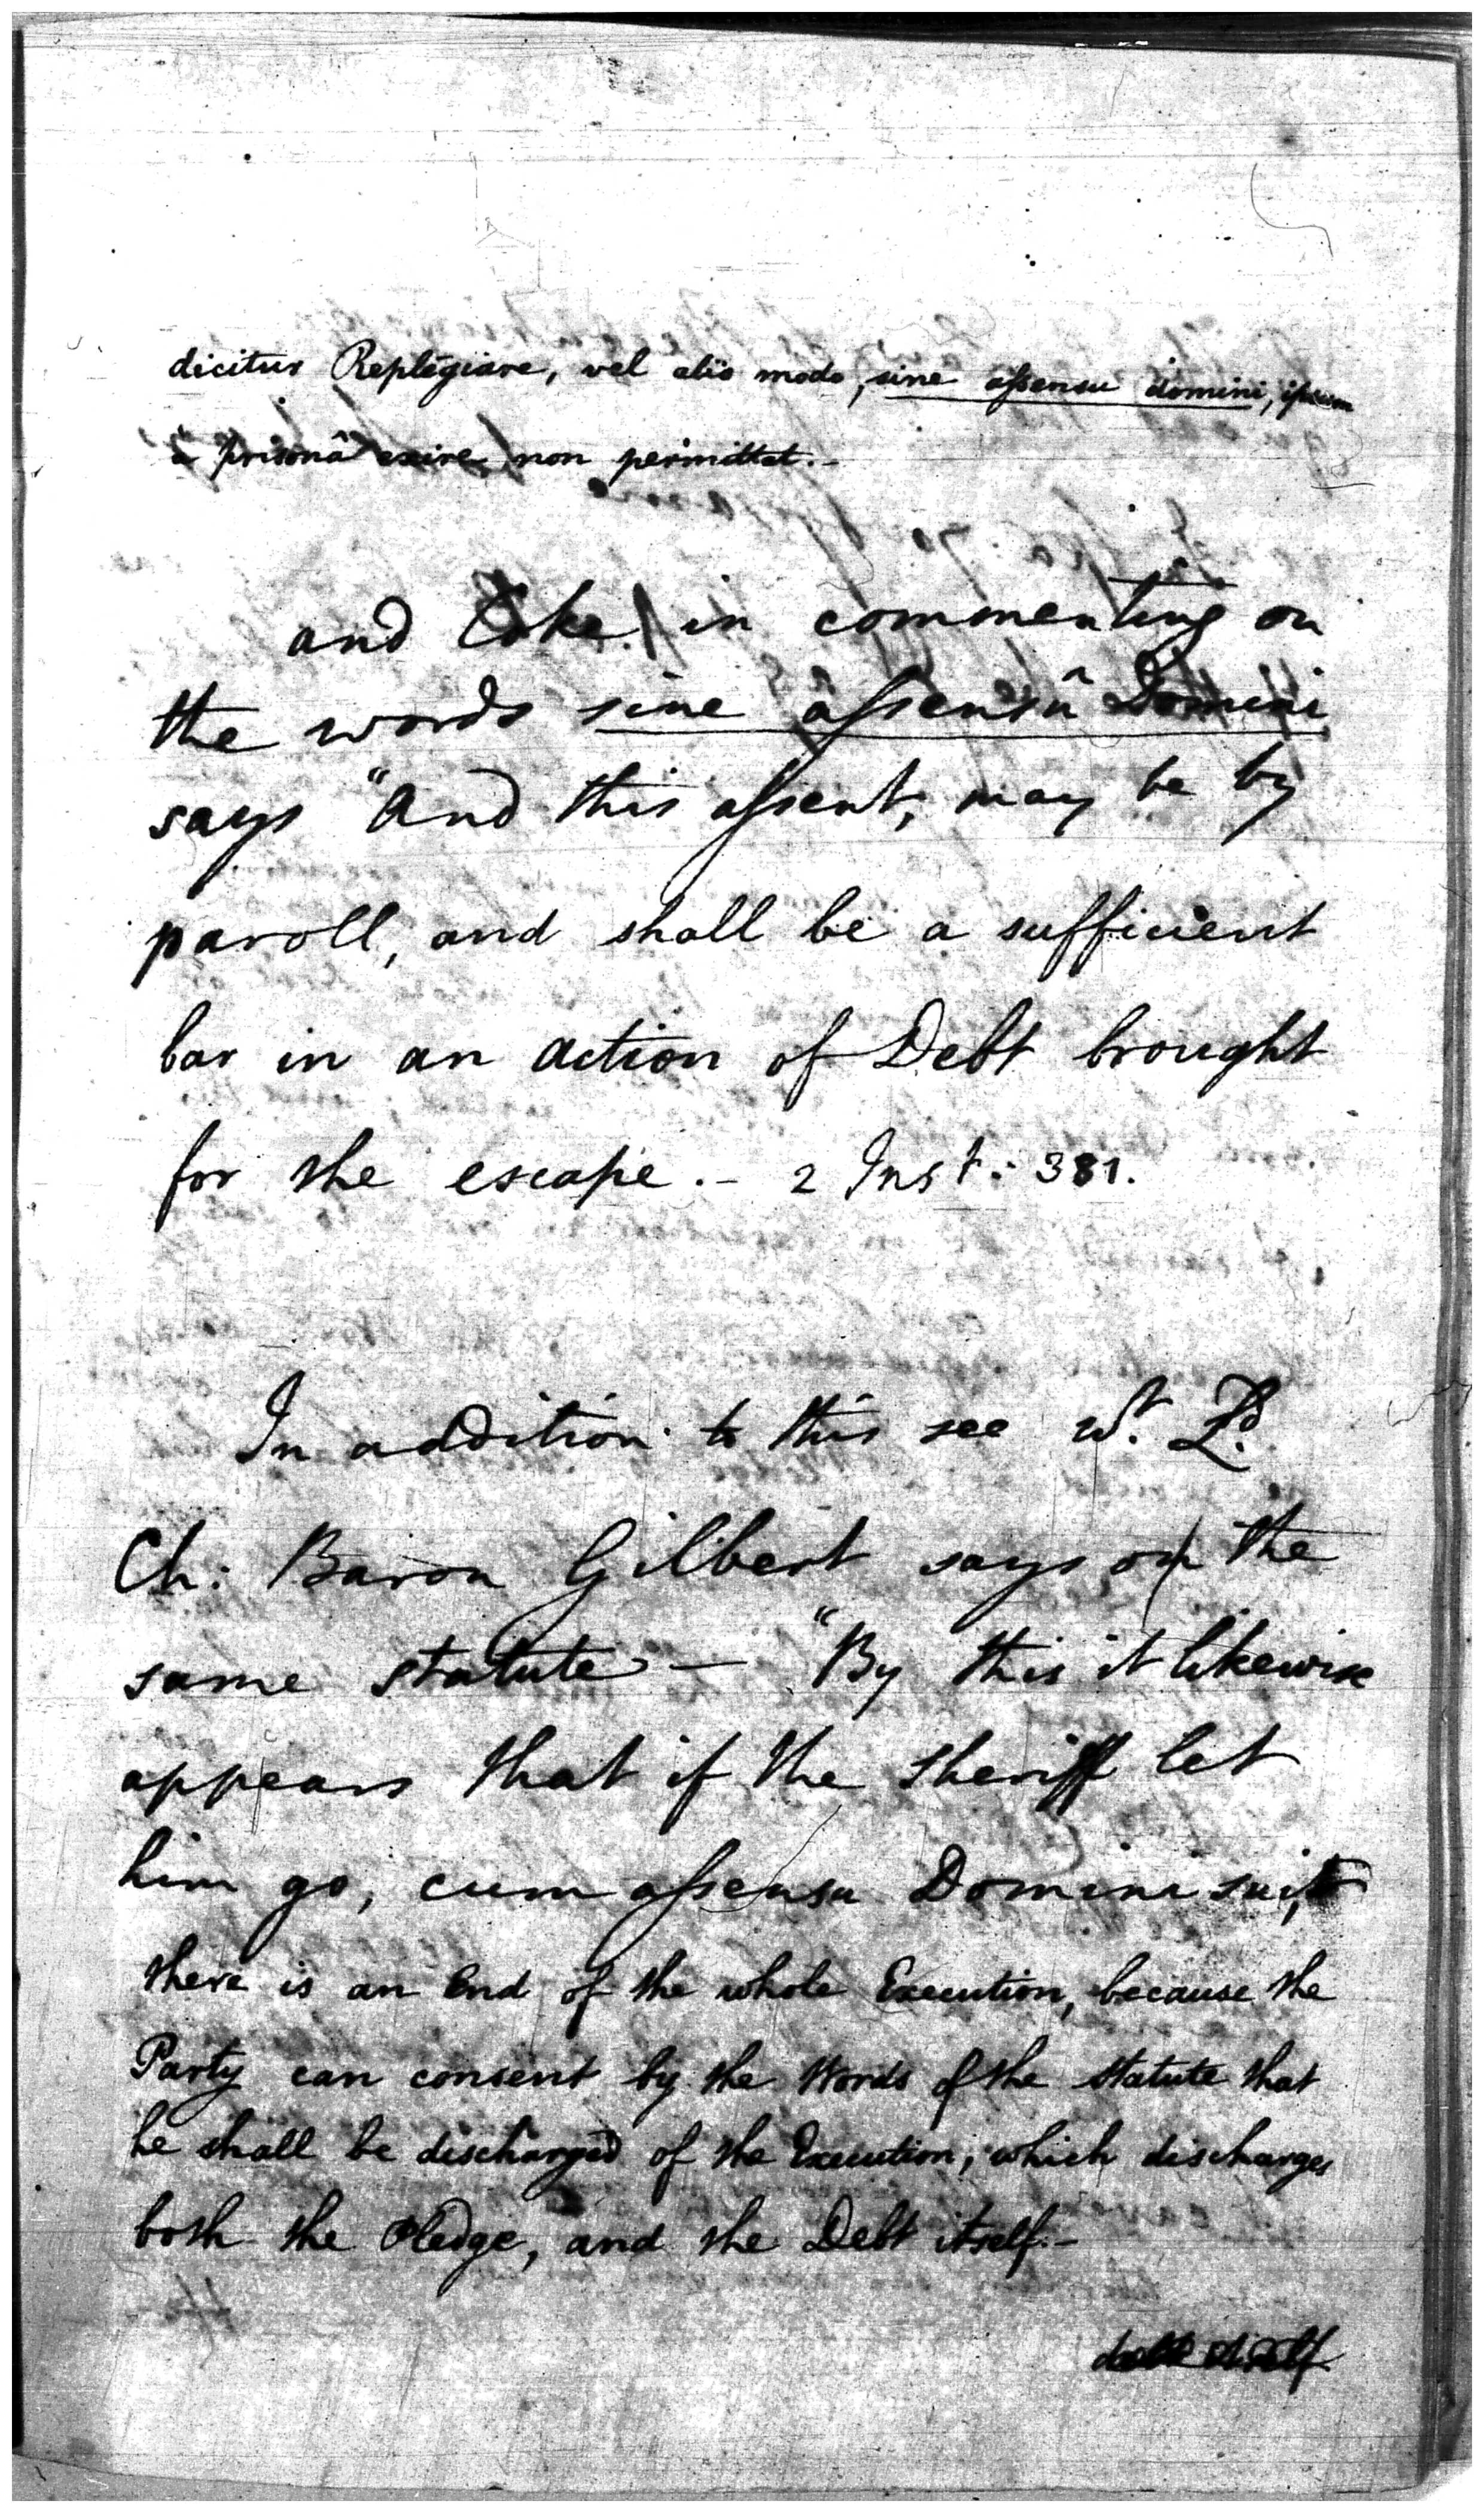 dicitur Replegiare, vel alio modo, sine assensu domini, ipsum
à prisonâ exire, non permittat.-
and Coke in commenting on
the words sine assensû Domini
says "And this assent, may be by
paroll, and shall be a sufficient
bar in an action of Debt brought
for the escape.- 2 Inst: 381.
In addition to this see wt. Ld.
Ch: Baron Gilbert says on the
same statute - "By this it likewise
appears that if the sheriff let
him go, cum assensu Domini sui,
there is an End of the whole Execution, because the
Party can consent by the Words of the Statute that
he shall be discharged of the Execution, which discharges
both the Pledge, and the Debt itself.-
debt itself